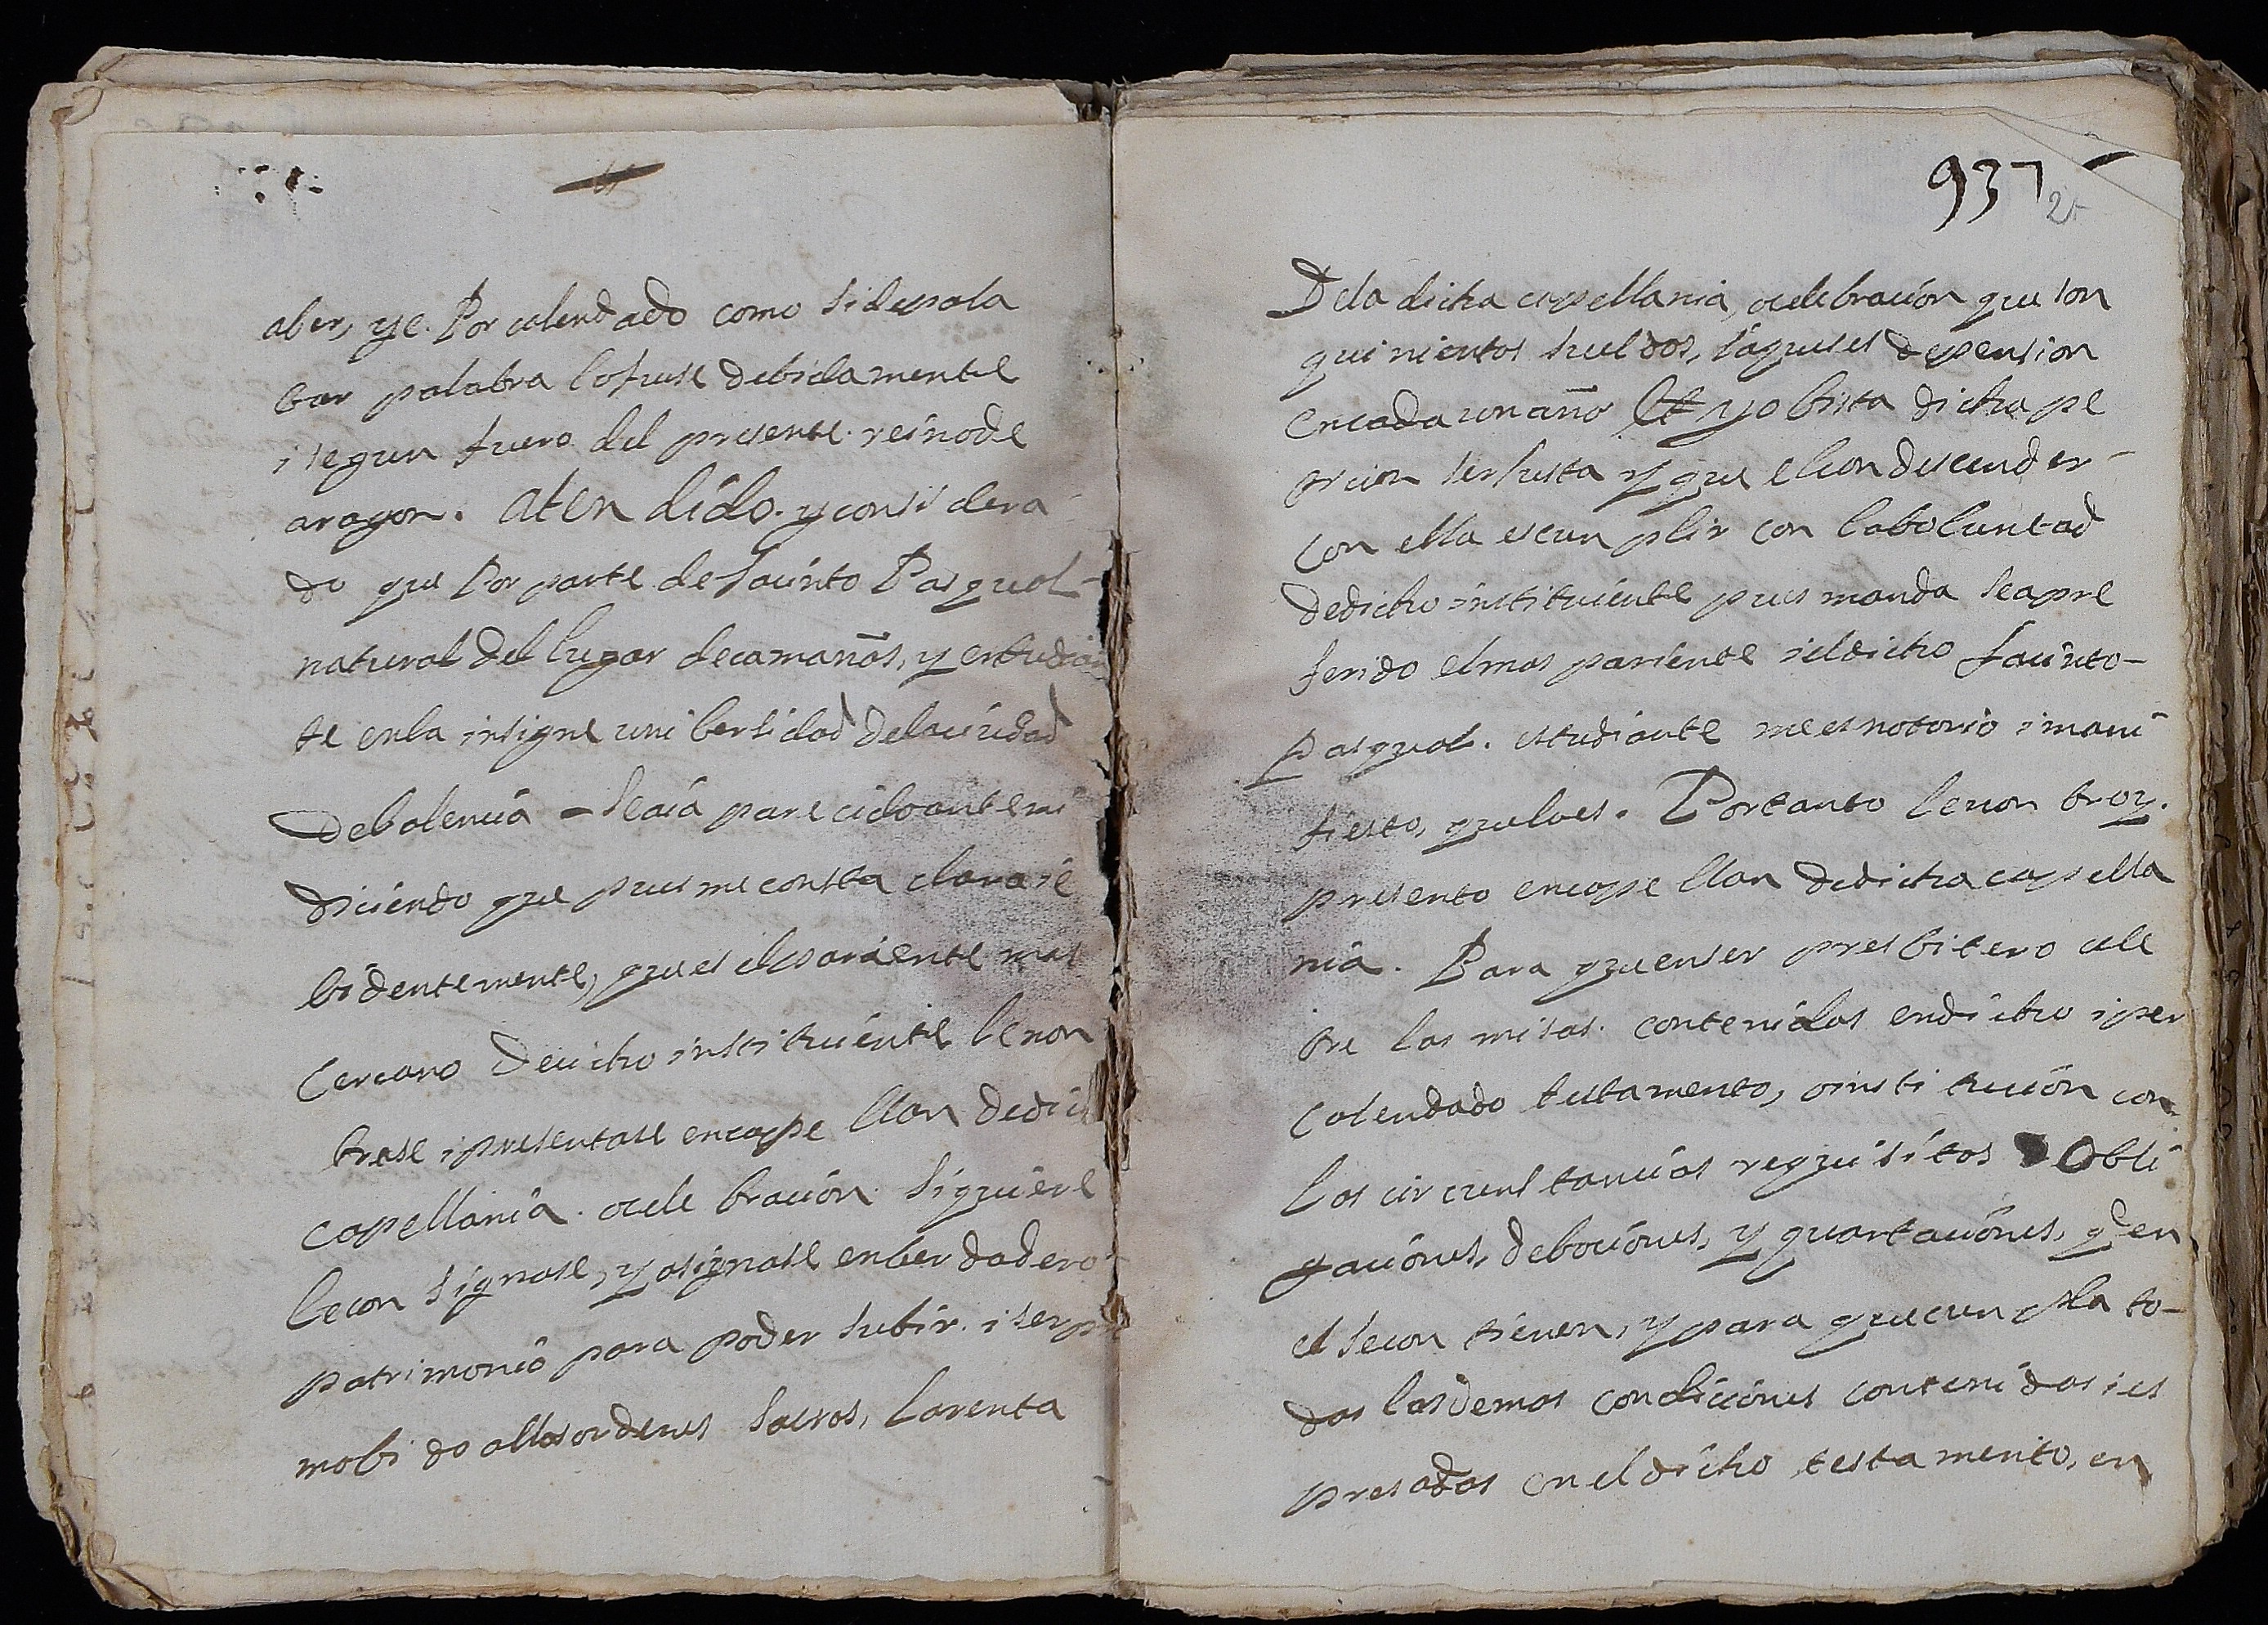 aber, y c. Por calendado como si depala
bar palabra lo fuese debidamente
i segun fuero del presente reino de
aragon. aten dido. y considera
do que Por parte de Jacinto Pasqual
natural del lugar de camañas, y estudian
te enla insigne unibersidad delaciudad
debalencia - seaia parecido ante mi
diciendo que pues me consta clara ie
bidentemente, que es el pariente mas
cercano de dicho instituiente le non
brase i presentase encape llan dedich
capellania. o cele bracion. siquiere
lecon signase, y asignase enber dadero
patrimonio para poder subir. i ser pro
mobi do allas ordenes sacros, la renta
937
25
Dela dicha capellania, o celebracion que son
quinientos sueldos, jaqueses de pension
encada un año Et yo bista dicha pe
ticion ser justa y que el condescender
con ella es cun plir con la boluntad
de dicho instituiente pues manda sea pre
ferido el mas pariente i el dicho Jacinto
Pasqual. estudiante me es notorio i mani
fiesto, que lo es. Portanto le non broy.
presento encape llan de dicha capella
nia. Para que en ser presbitero cele
bre las misas. contenidas en dicho i per
calendado testamento, o insti tucion con
las circunstancias requisitos Obli
gaciones, debociones, y quartaciones, q en
el se con tienen, y para que cun pla to
das las demas condiciones contenidas i es
presadas en el dicho testamento, en